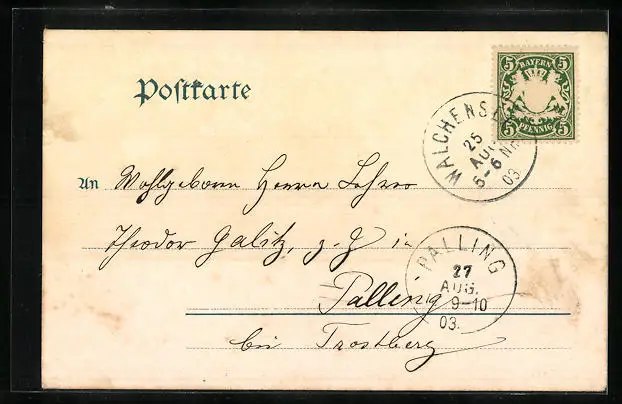 Postkarte
5 BAYERN 5
5 PFENNIG 5
WALCHENSEE
25
AUG.
5-6 NM
03
An Wohlgeboren Herrn Lehrer
Theodor Galitz, z. Z in
Palling
bei Trostberg
PALLING
27
AUG.
9-10
03.